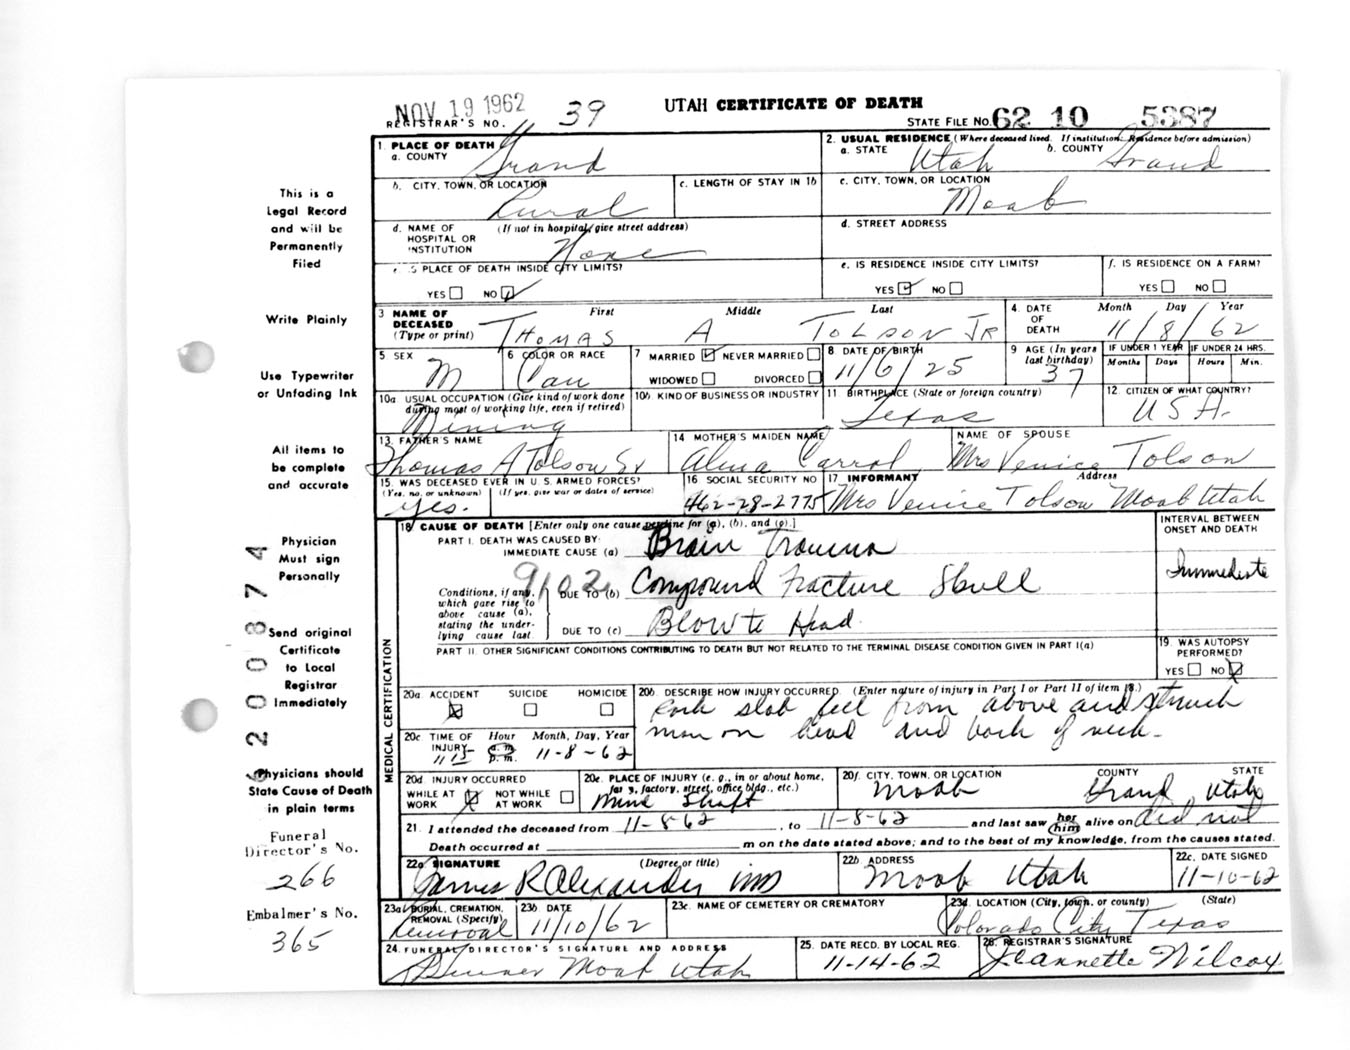 NOV 19 1962
REGISTRAR'S NO. 39
UTAH CERTIFICATE OF DEATH
STATE FILE NO. 62 10 5387
1. PLACE OF DEATH
a. COUNTY Grand
2. USUAL RESIDENCE (Where deceased lived. If institution: Residence before admission)
a. STATE Utah b. COUNTY Grand
b. CITY, TOWN, OR LOCATION Rural
c. LENGTH OF STAY IN 1b
c. CITY, TOWN, OR LOCATION Moab
d. NAME OF HOSPITAL OR INSTITUTION (If not in hospital, give street address) None
d. STREET ADDRESS
e. IS PLACE OF DEATH INSIDE CITY LIMITS?
YES NO
e. IS RESIDENCE INSIDE CITY LIMITS?
YES NO
f. IS RESIDENCE ON A FARM?
YES NO
3 NAME OF DECEASED (Type or print) First Middle Last
THOMAS A TOLSON JR
4. DATE OF DEATH Month Day Year
11/8/62
5 SEX M
6 COLOR OR RACE Cau
7 MARRIED NEVER MARRIED
WIDOWED DIVORCED
8 DATE OF BIRTH 11/6/25
9 AGE (In years last birthday) 37
IF UNDER 1 YEAR Months Days
IF UNDER 24 HRS. Hours Min.
10a. USUAL OCCUPATION (Give kind of work done during most of working life, even if retired) Mining
10b KIND OF BUSINESS OR INDUSTRY
11 BIRTHPLACE (State or foreign country) Texas
12. CITIZEN OF WHAT COUNTRY? USA.
13. FATHER'S NAME Thomas A Tolson Sr
14 MOTHER'S MAIDEN NAME Alma Carrol
NAME OF SPOUSE Mrs Venice Tolson
15. WAS DECEASED EVER IN U.S. ARMED FORCES?
(Yes, no, or unknown) (If yes, give war or dates of service)
yes.
16 SOCIAL SECURITY NO 462-28-2775
17 INFORMANT Address
Mrs Venice Tolson Moab Utah
18 CAUSE OF DEATH [Enter only one cause per line for (a), (b), and (c).]
INTERVAL BETWEEN ONSET AND DEATH
PART I. DEATH WAS CAUSED BY:
IMMEDIATE CAUSE (a) Brain Trauma
Immediate
9102
Conditions, if any, which gave rise to above cause (a), stating the under-lying cause last.
DUE TO (b) Compound Fracture Skull
DUE TO (c) Blow to Head
PART II. OTHER SIGNIFICANT CONDITIONS CONTRIBUTING TO DEATH BUT NOT RELATED TO THE TERMINAL DISEASE CONDITION GIVEN IN PART I(a)
19. WAS AUTOPSY PERFORMED?
YES NO
MEDICAL CERTIFICATION
20a. ACCIDENT SUICIDE HOMICIDE
20b. DESCRIBE HOW INJURY OCCURRED. (Enter nature of injury in Part I or Part II of item 18.)
Rock slab fell from above and struck
man on head and back of neck.
20c. TIME OF INJURY Hour Month, Day, Year
1115 a.m. p.m. 11-8-62
20d INJURY OCCURRED
WHILE AT WORK NOT WHILE AT WORK
20e. PLACE OF INJURY (e. g., in or about home, farm, factory, street, office bldg., etc.)
Mine Shaft
20f. CITY, TOWN, OR LOCATION COUNTY STATE
Moab Grand Utah
21. I attended the deceased from 11-8-62, to 11-8-62 and last saw her him alive on did not
Death occurred at m on the date stated above; and to the best of my knowledge, from the causes stated.
22a SIGNATURE (Degree or title)
James R Alexander MD
22b ADDRESS
Moab Utah
22c. DATE SIGNED
11-10-62
23a. BURIAL, CREMATION, REMOVAL (Specify) Removal
23b. DATE 11/10/62
23c. NAME OF CEMETERY OR CREMATORY
23d. LOCATION (City, town, or county) (State)
Colorado City Texas
24. FUNERAL DIRECTOR'S SIGNATURE AND ADDRESS
Moab Utah
25. DATE RECD. BY LOCAL REG.
11-14-62
26. REGISTRAR'S SIGNATURE
Jeannette Wilcox
This is a
Legal Record
and will be
Permanently
Filed
Write Plainly
Use Typewriter
or Unfading Ink
All items to
be complete
and accurate
Physician
Must sign
Personally
Send original
Certificate
to Local
Registrar
Immediately
Physicians should
State Cause of Death
in plain terms
Funeral
Director's No.
266
Embalmer's No.
365
2200874